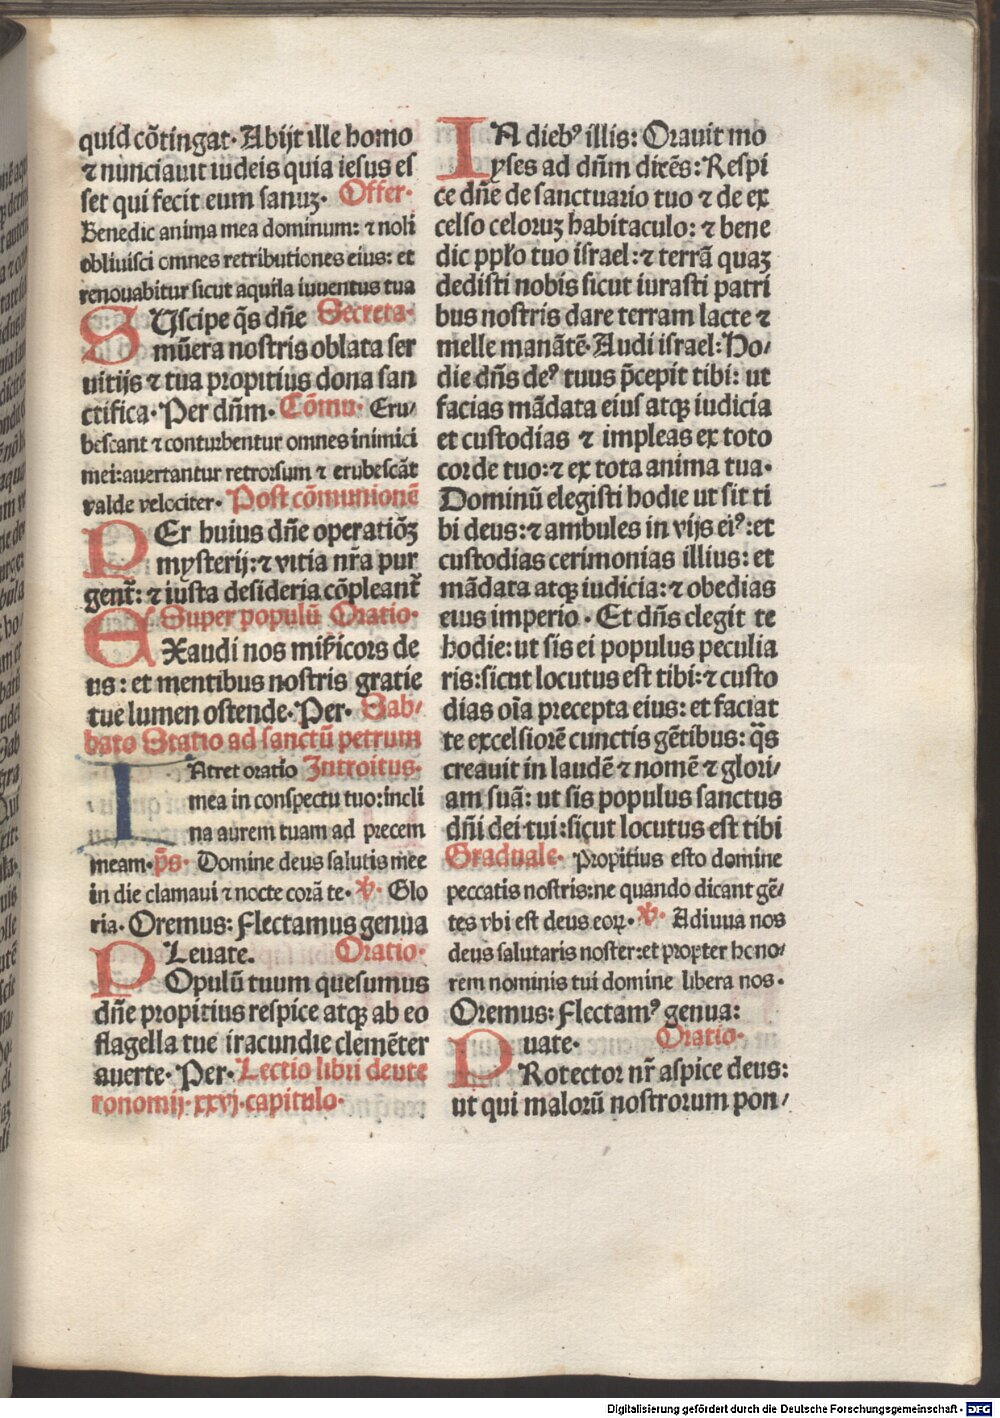 quid cõtingat· Abijt ille homo
⁊ nunciauit iudeis quia iesus es
set qui fecit eum sanuꝫ· Offer·
Benedic anima mea dominum: ⁊ noli
obliuisci omnes retributiones eius: et
renouabitur sicut aquila iuuentus tua
SUscipe q̃s dñe Secreta·
mũera nostris oblata ser
uitijs ⁊ tua propitius dona san
ctifica· Per dñm· Cõmu· Eru/
bescant ⁊ conturbentur omnes inimici
mei: auertantur retrorsum ⁊ erubescãt
valde velociter· Post cõmunionẽ
PEr huius dñe operatiõꝫ
mysterij: ⁊ vitia nr̃a pur
gent̃: ⁊ iusta desideria cõpleant̃
Super populũ Oratio·
EXaudi nos mis̃icors de
us: et mentibus nostris gratie
tue lumen ostende· Per· Sab/
bato Statio ad sanctũ petrum
INtret oratio Introitus·
mea in conspectu tuo: incli
na aurem tuam ad precem
meam· p̃s· Domine deus salutis mee
in die clamaui ⁊ nocte corã te· ℣· Glo
ria· Oremus: Flectamus genua
Leuate. Oratio·
POpulũ tuum quesumus
dñe propitius respice atqꝫ ab eo
flagella tue iracundie clemẽter
auerte· Per· Lectio libri deute
ronomij· xxvj· capitulo·
IN diebꝰ illis: Orauit mo
yses ad dñm dicẽs: Respi
ce dñe de sanctuario tuo ⁊ de ex
celso celoruꝫ habitaculo: ⁊ bene
dic pp̃lo tuo israel: ⁊ terrã quaꝫ
dedisti nobis sicut iurasti patri
bus nostris dare terram lacte ⁊
melle manãtẽ· Audi israel: Ho/
die dñs deꝰ tuus p̃cepit tibi: ut
facias mãdata eius atqꝫ iudicia
et custodias ⁊ impleas ex toto
corde tuo: ⁊ ex tota anima tua·
Dominũ elegisti hodie ut sit ti
bi deus: ⁊ ambules in vijs eiꝰ: et
custodias cerimonias illius: et
mãdata atqꝫ iudicia: ⁊ obedias
eius imperio · Et dñs elegit te
hodie: ut sis ei populus peculia
ris: sicut locutus est tibi: ⁊ custo
dias oĩa precepta eius: et faciat
te excelsiorẽ cunctis gẽtibus: q̃s
creauit in laudẽ ⁊ nomẽ ⁊ glori/
am suã: ut sis populus sanctus
dñi dei tui: sicut locutus est tibi
Graduale· Propitius esto domine
peccatis nostris: ne quando dicant gẽ/
tes vbi est deus eoꝝ· ℣· Adiuua nos
deus salutaris noster: et propter hono/
rem nominis tui domine libera nos·
Oremus: Flectamꝰ genua:
Leuate· Oratio·
PRotector nr̃ aspice deus:
ut qui malorũ nostrorum pon/
Digitalisierung gefördert durch die Deutsche Forschungsgemeinschaft · DFG